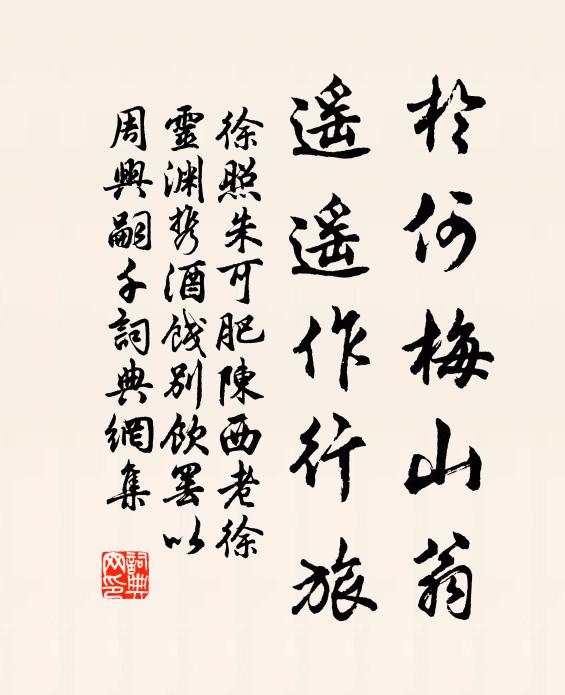 於何梅山翁
遥遥作行旅
徐照朱可肥陳西老徐
靈淵携酒餞別飲罢以
周興嗣千詞典網集